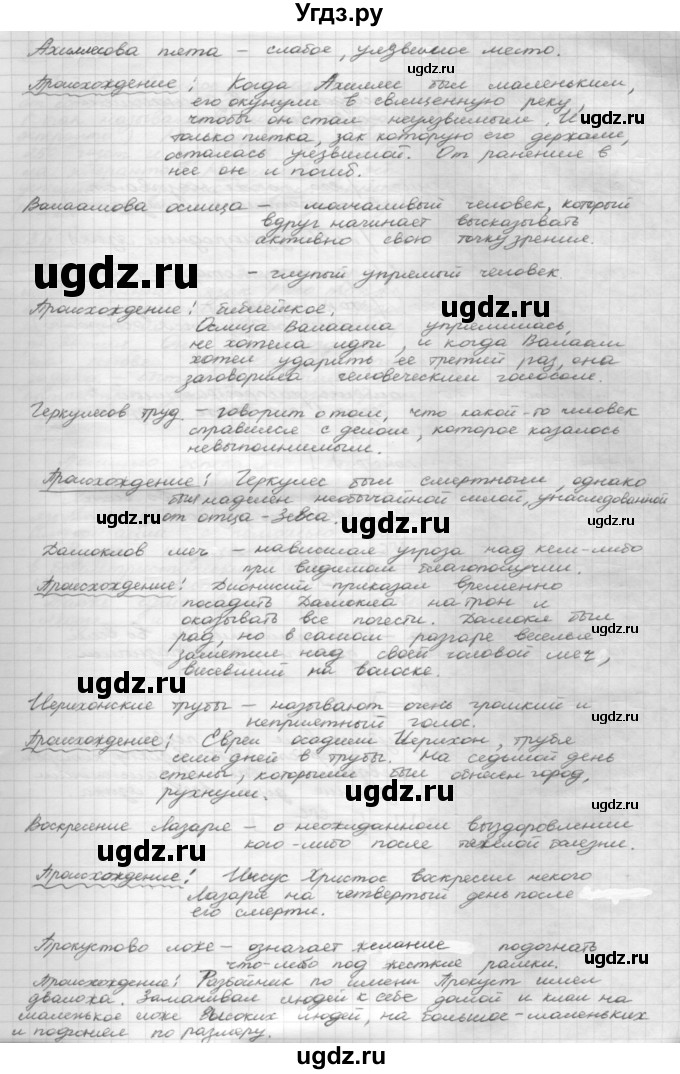 Угдз.ру
Ахиллесова пята – слабое, уязвимое место.
ugdz.ru
Происхождение: Когда Ахиллес был маленьким,
его окунули в священную реку,
чтобы он стал неуязвимым. И
ugdz.ru
только пятка, за которую его держали,
осталась уязвимой. От ранения в
нее он и погиб.
Валаамова ослица – молчаливый человек, который
вдруг начинает высказывать
активно свою точку зрения.
ugdz.ru
– глупый упрямый человек.
ugdz.ru
Происхождение: библейское.
Ослица Валаама упрямилась,
не хотела идти, и когда Валаам
хотел ударить ее третий раз, она
заговорила человеческим голосом.
Геркулесов труд – говорит о том, что какой-то человек
справился с делом, которое казалось
невыполнимым.
Происхождение: Геркулес был смертным, однако
был наделен необычайной силой, унаследованной
от отца – Зевса.
ugdz.ru
ugdz.ru
ugdz.ru
Дамоклов меч – нависшая угроза над кем-либо
при видимом благополучии.
Происхождение: Дионисий приказал временно
посадить Дамокла на трон и
оказывать все почести. Дамокл был
ugdz.ru
рад, но в самом разгаре веселья
заметил над своей головой меч,
висевший на волоске.
ugdz.ru
Иерихонские трубы – называют очень громкий и
неприятный голос.
ugdz.ru
Происхождение: Евреи осадили Иерихон, трубя
семь дней в трубы. На седьмой день
стены, которыми был обнесен город,
рухнули.
ugdz.ru
ugdz.ru
Воскресение Лазаря – о неожиданном выздоровлении
кого-либо после тяжелой болезни.
ugdz.ru
Происхождение: Иисус Христос воскресил некого
Лазаря на четвертый день после
его смерти.
Прокустово ложе – означает желание подогнать
что-либо под жесткие рамки.
ugdz.ru
Происхождение: Разбойник по имени Прокуст имел
два ложа. Заманивал людей к себе домой и клал на
маленькое ложе высоких людей, на большое – маленьких
и подгонял по размеру.
ugdz.ru
ugdz.ru